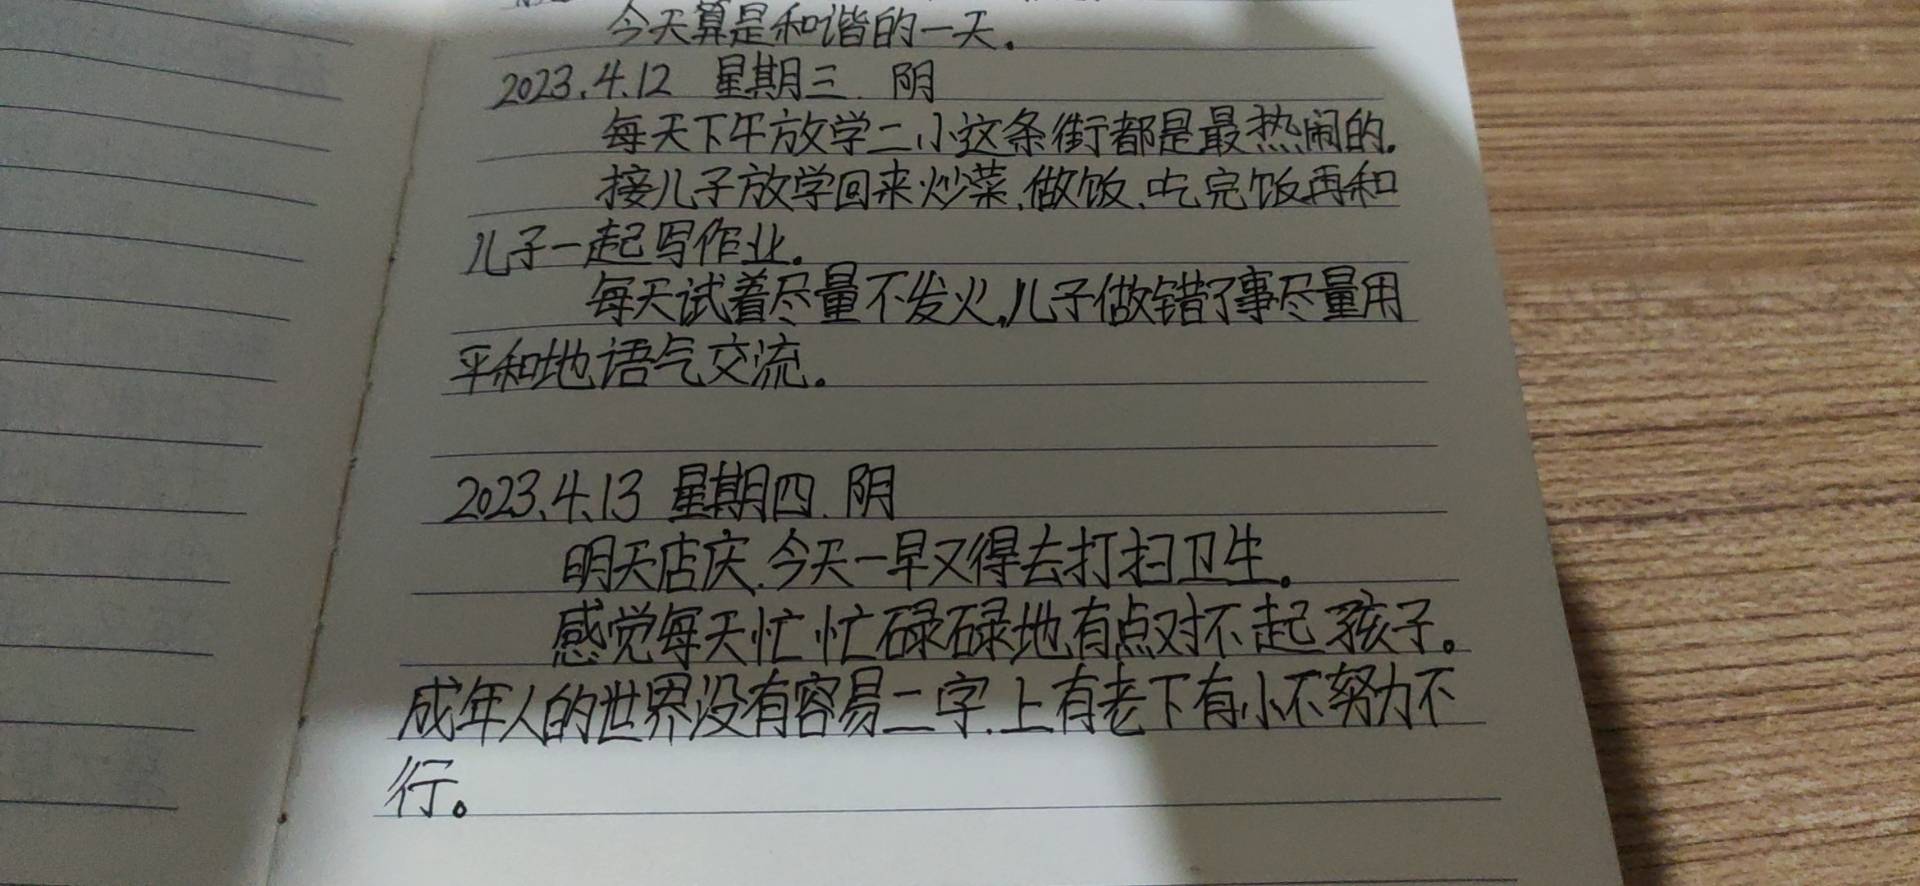 今天算是和谐的一天.
2023.4.12 星期三. 阴
每天下午放学二小这条街都是最热闹的.
接儿子放学回来炒菜.做饭.吃完饭再和
儿子一起写作业.
每天试着尽量不发火,儿子做错了事尽量用
平和地语气交流。
2023.4.13 星期四. 阴
明天店庆.今天一早又得去打扫卫生。
感觉每天忙忙碌碌地有点对不起孩子。
成年人的世界没有容易二字.上有老下有小不努力不
行。